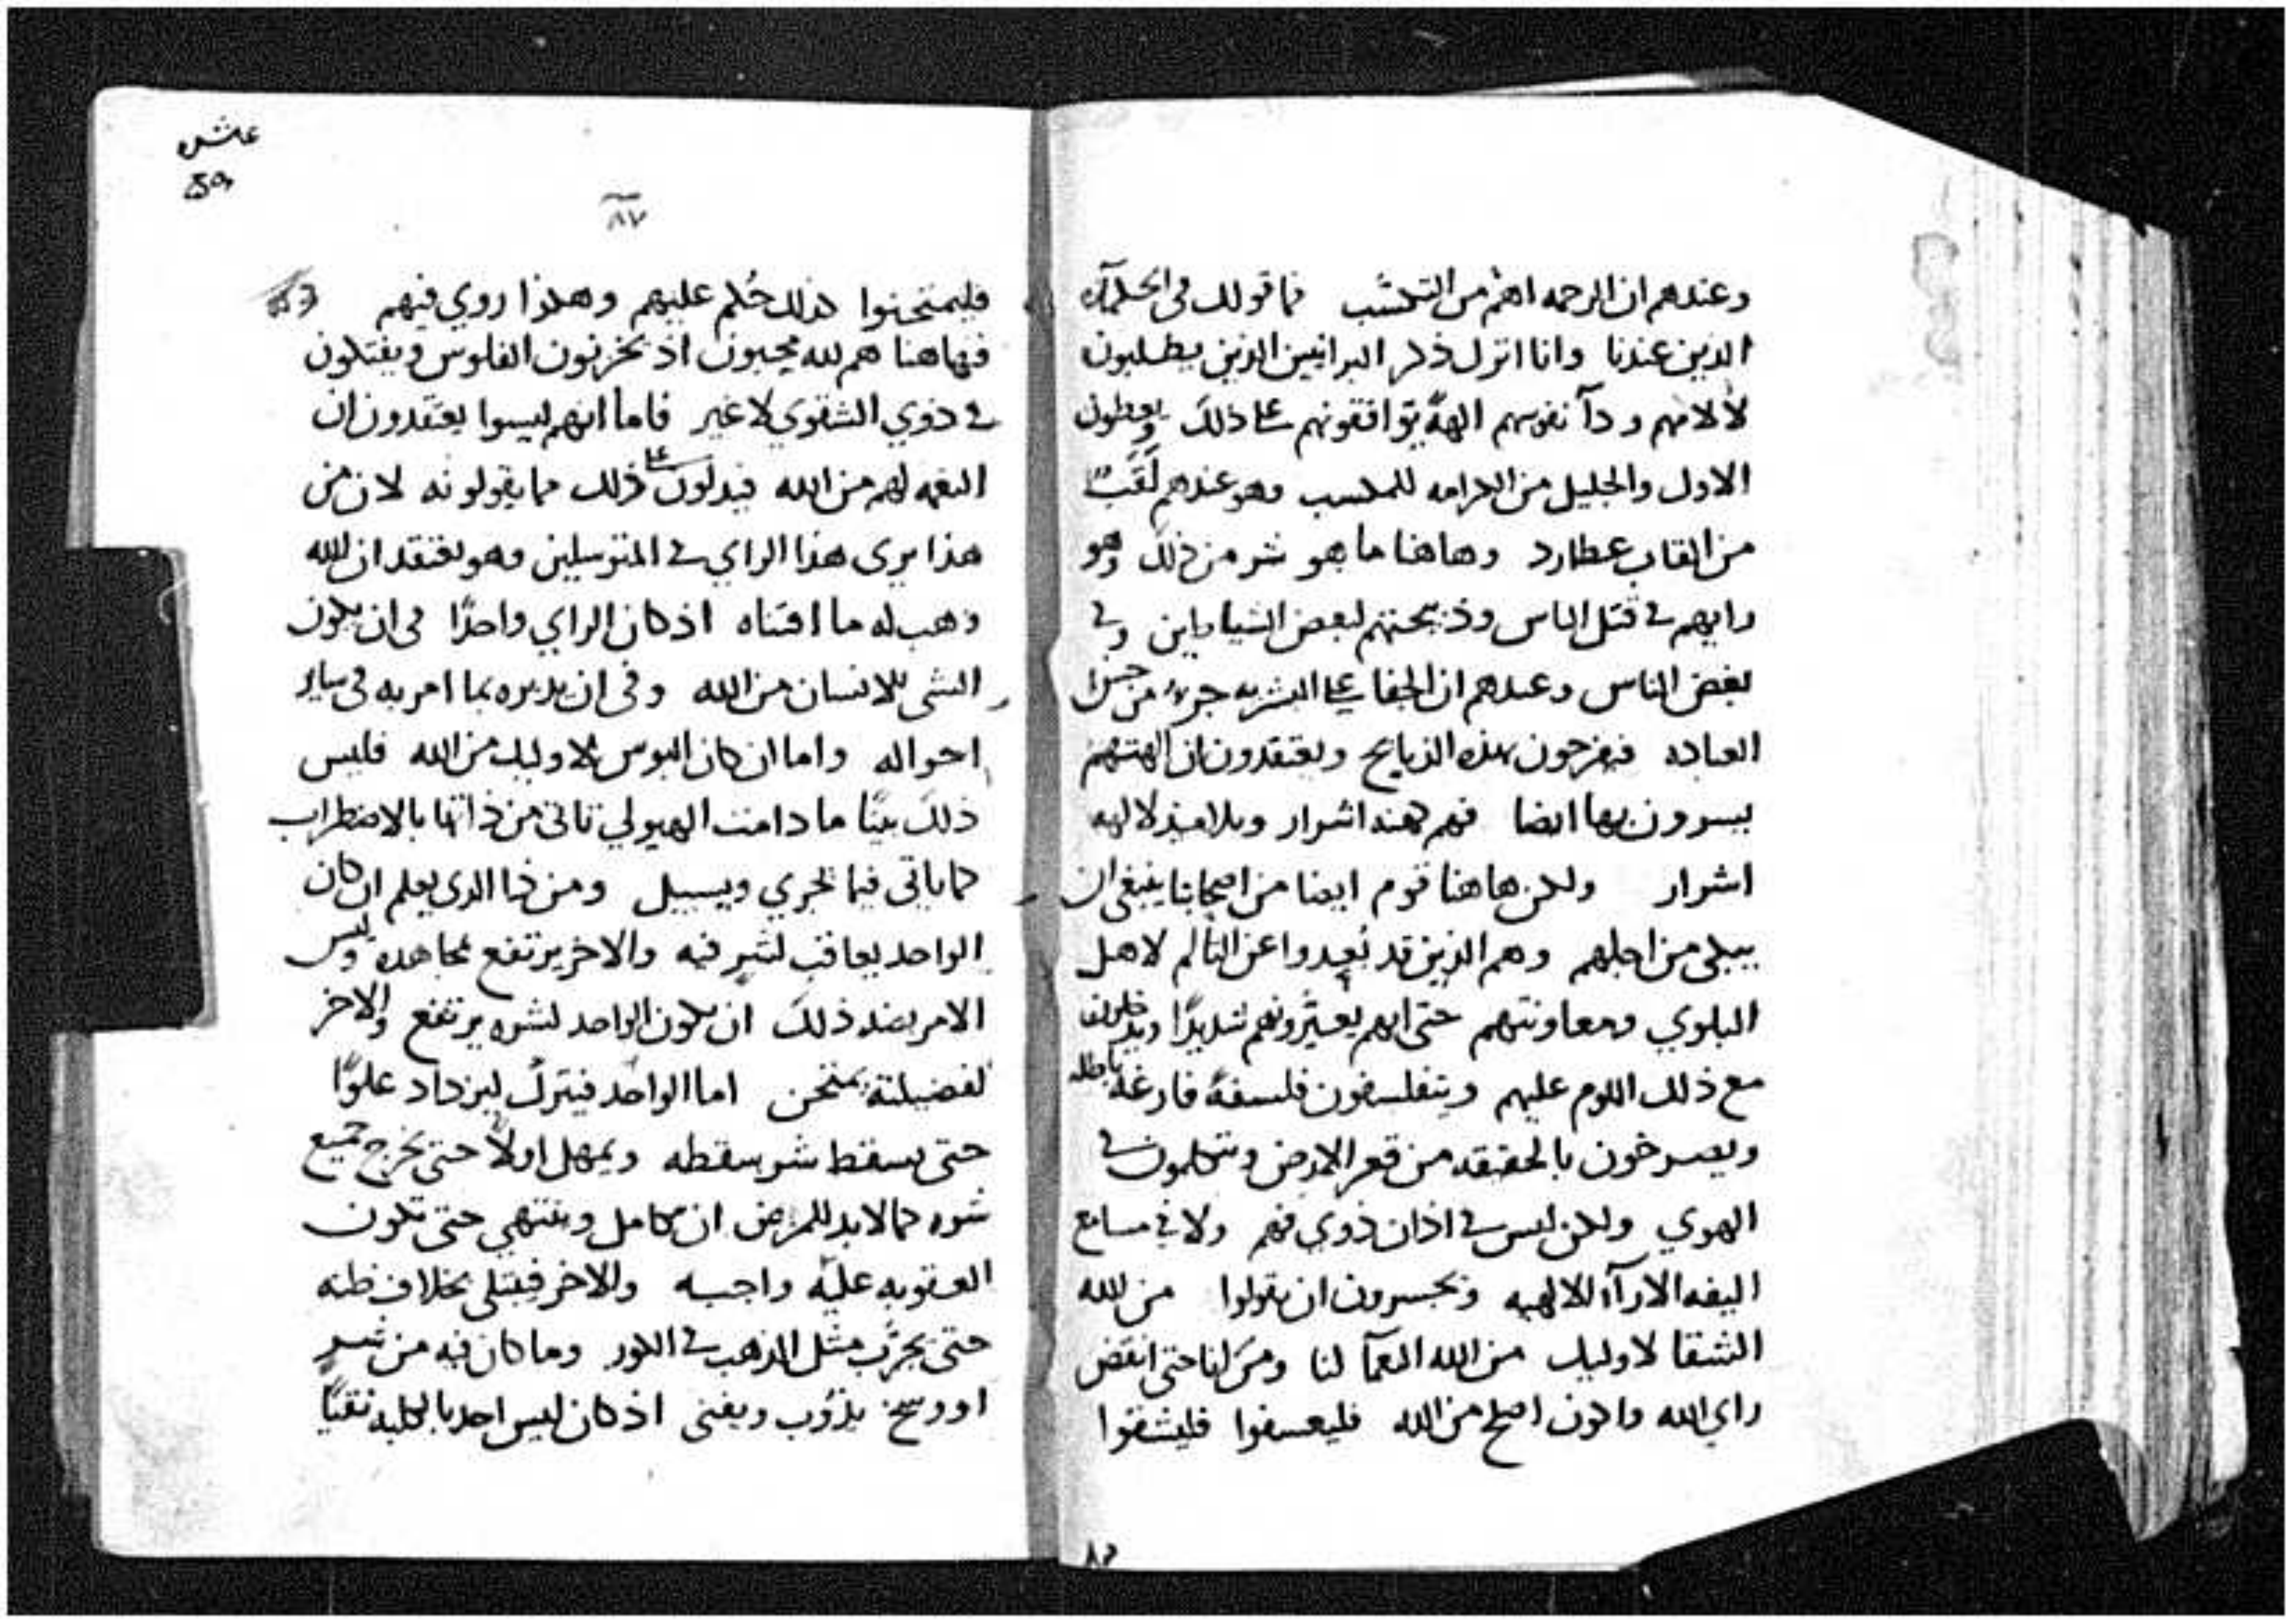 وعندهم ان الرحمه اهم من التكسب فما قولك في الحكمآء
الذين عندنا وانا اترك ذكر البرانيين الذين يطلبون
لالامهم ودآ نفوسهم الهةً توافقونهم على ذلك ويعطون
الاول والجليل من الكرامه للمكسب وهو عندهم لَقَبٌ
من القاب عطارد وهاهنا ما هو شر من ذلك وهو
رايهم في قتل الناس وذبيحتهم لبعض الشياطين وفي
بعض الناس وعندهم ان الجفا على البشريه جزء من
العباده فيفرحون بهذه الذبايح ويعتقدون ان الهتهم
يسرون بها ايضا فهم كهنه اشرار وتلاميذ لالهه
اشرار ولكن هاهنا قوم ايضا من اصحابنا ينبغي ان
يبكى من اجلهم وهم الذين قد بُعِدوا عن التالم لاهل
البلوي ومعاونتهم حتى انهم يعيّرونهم شديدًا
مع ذلك اللوم عليهم ويتفلسفون فلسفةً فارغةً باطله
ويصرخون بالحقيقه من قعر الارض ويتكلمون في
الهوي ولكن ليس في اذان ذوي فهم ولا في مسامع
اليفه الارآء الالهيه ويجسرون ان يقولوا من الله
الشقا لاوليك من الله النعمآ لنا ومَن انا حتى انقض
راي الله واكون اصلح من الله فليعسفوا فليشقوا
٨٧
فليمتحنوا كذلك حُكم عليهم وهكذا روي فيهم
فهاهنا هم لله محبون اذ يخزنون الفلوس ويفتكون
في ذوي الشقوي لا غير فاما انهم ليسوا يعتقدون ان
النعمه لهم من الله فيدلون على ذلك مما يقولونه لان من
هذا يرى هذا الراي في المتوسلين وهو يعتقد ان الله
وهب له ما اقتناه اذ كان الراي واحدًا في ان يكون
الشى للانسان من الله وفى ان يديره بما امر به في ساير
احواله واما ان كان البوس لاوليك من الله فليس
ذلك بيّنًا ما دامت الهيولي تاتى من ذاتها بالاضطراب
كما ياتى فيما يجري ويسيل ومن ذا الذى يعلم ان كان
الواحد يعاقب لشرٍ فيه والاخر يرتفع بمجاهده وليس
الامر بضد ذلك ان يكون الواحد لشره يرتفع والاخر
لفضيلته يمتحن اما الواحد فيترك ليزداد علوًا
حتى يسقط شر سقطه ويمهل اولًا حتى يخرج جميع
شره كما لا بد للمرض ان تكامل وينتهي حتى تكون
العقوبه عليه واجبه والاخر فيبتلى بخلاف ظنه
حتى يجرّب مثل الذهب في الكور وما كان فيه من شرٍ
او وسخ يذوب ويفنى اذ كان ليس احد بالكليه نقيًا